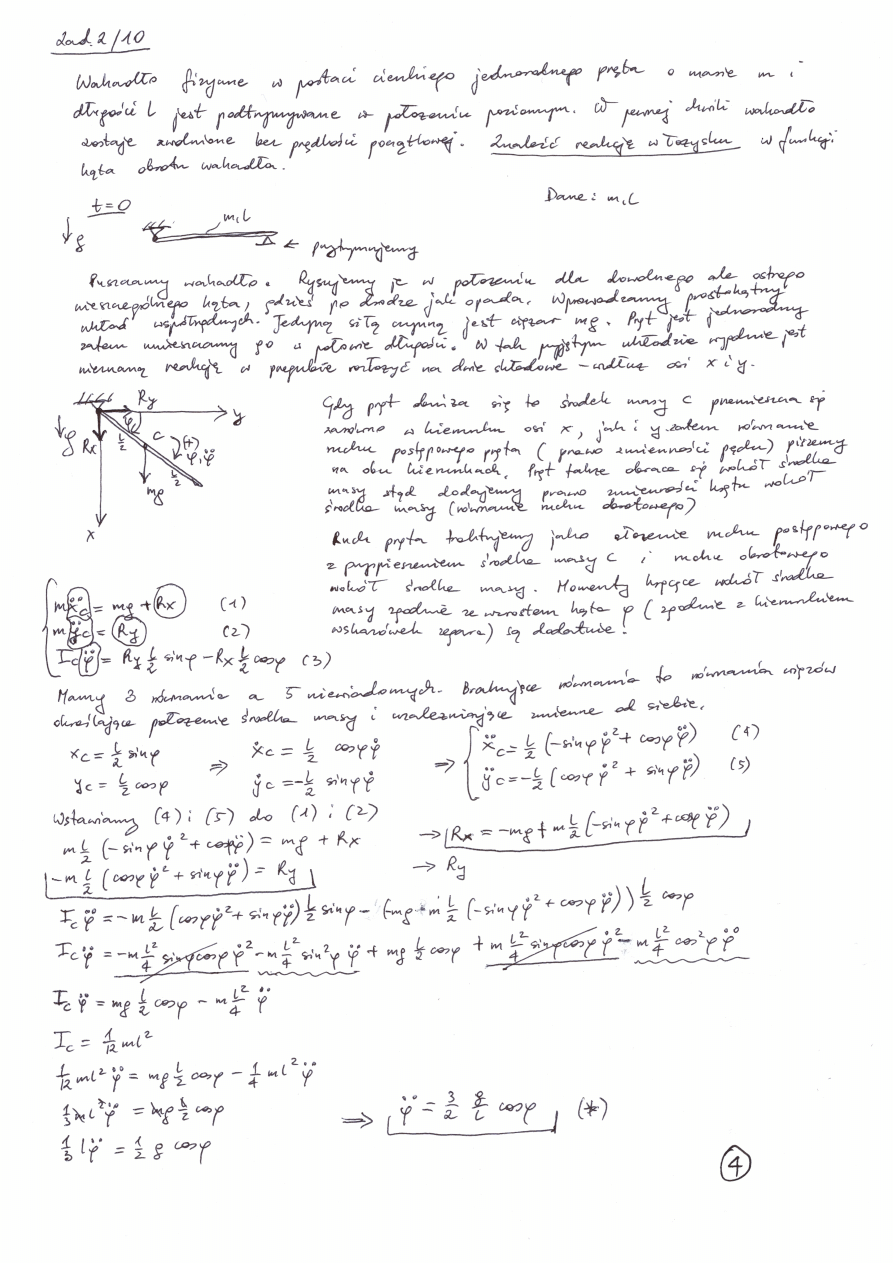 Zad. 2/10
Wahadło fizyczne w postaci cienkiego jednorodnego pręta o masie m i
długości l jest podtrzymywane w położeniu poziomym. W pewnej chwili wahadło
zostaje zwolnione bez prędkości początkowej. Znaleźć reakcję w łożysku w funkcji
kąta obrotu wahadła.
Dane: m, l
t=0
g
m, l
← przytrzymujemy
Puszczamy wahadło. Rysujemy je w położeniu dla dowolnego ale ostrego
nieszczególnego kąta, gdzieś po drodze jak opada. Wprowadzamy prostokątny
układ współrzędnych. Jedyną siłą czynną jest ciężar mg. Pręt jest jednorodny
zatem umieszczamy go w połowie długości. W tak przyjętym układzie wygodnie jest
nieznaną reakcję w przegubie rozłożyć na dwie składowe – wzdłuż osi x i y.
Ry
y
φ
g
Rx
l/2
C
(+)
φ, φ̈
l/2
mg
x
Gdy pręt porusza się to środek masy C przemieszcza się
zarówno w kierunku osi x, jak i y zatem równanie
ruchu postępowego pręta (prawo zmienności pędu) piszemy
na obu kierunkach. Pręt także obraca się wokół środka
masy stąd dodajemy prawo zmienności krętu wokół
środka masy (równanie ruchu obrotowego)
Ruch pręta traktujemy jako złożenie ruchu postępowego
z przyspieszeniem środka masy C i ruchu obrotowego
wokół środka masy. Momenty kręcące wokół środka
masy zgodnie ze wzrostem kąta φ (zgodnie z kierunkiem
wskazówek zegara) są dodatnie!
mẍc = mg + Rx (1)
mÿc = Ry (2)
Ic φ̈ = Ry l/2 sinφ – Rx l/2 cosφ (3)
Mamy 3 równania a 5 niewiadomych. Brakujące równania to równania więzów
określające położenie środka masy i uzależniające zmienne od siebie.
xc = l/2 sinφ ⇒ ẋc = l/2 cosφ φ̇ ⇒ ẍc = l/2 (-sinφ φ̇² + cosφ φ̈) (4)
yc = l/2 cosφ ẏc = -l/2 sinφ φ̇ ÿc = -l/2 (cosφ φ̇² + sinφ φ̈) (5)
Wstawiamy (4) i (5) do (1) i (2)
m l/2 (-sinφ φ̇² + cosφ φ̈) = mg + Rx → Rx = -mg + m l/2 (-sinφ φ̇² + cosφ φ̈)
-m l/2 (cosφ φ̇² + sinφ φ̈) = Ry → Ry
Ic φ̈ = -m l/2 (cosφ φ̇² + sinφ φ̈) l/2 sinφ – (-mg + m l/2 (-sinφ φ̇² + cosφ φ̈)) l/2 cosφ
Ic φ̈ = -m l²/4 sinφ cosφ φ̇² - m l²/4 sin²φ φ̈ + mg l/2 cosφ + m l²/4 sinφ cosφ φ̇² - m l²/4 cos²φ φ̈
Ic φ̈ = mg l/2 cosφ – m l²/4 φ̈
Ic = 1/12 ml²
1/12 ml² φ̈ = mg l/2 cosφ – 1/4 ml² φ̈
1/3 ml² φ̈ = mg l/2 cosφ ⇒ φ̈ = 3/2 g/l cosφ (*)
1/3 l φ̈ = 1/2 g cosφ
4